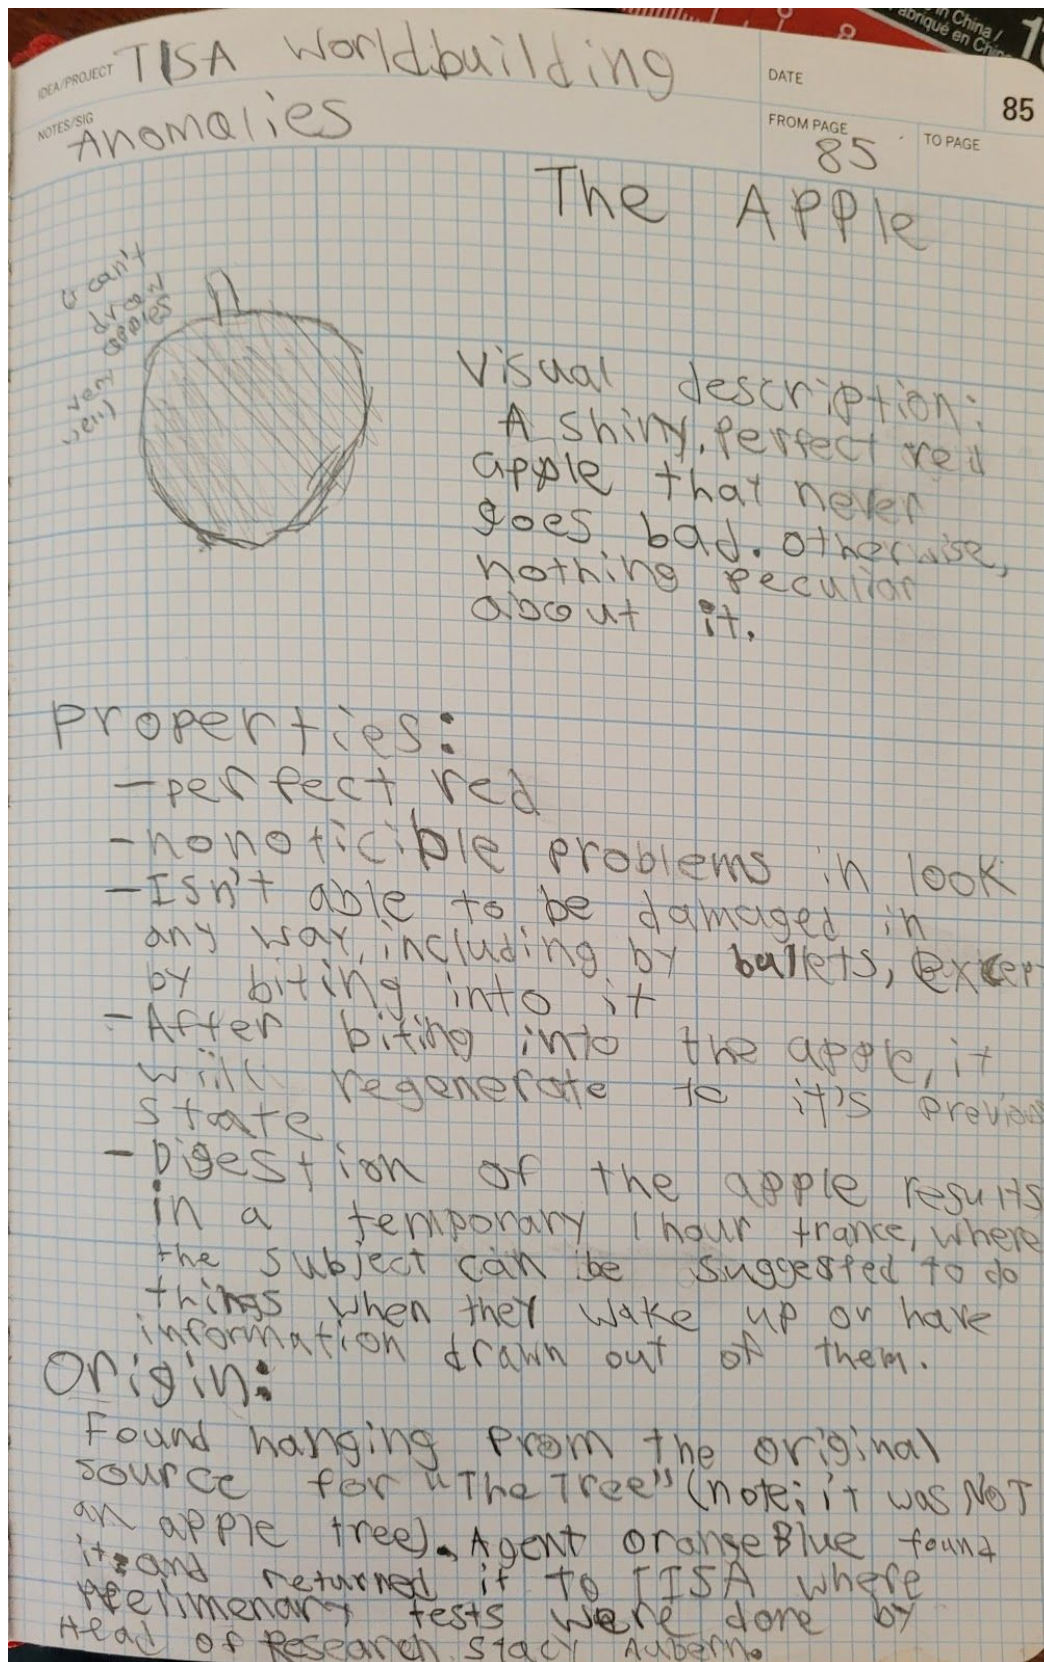 in China /
abriqué en Chin
IDEA/PROJECT TISA Worldbuilding
DATE
85
NOTES/SIG Anomalies
FROM PAGE 85
TO PAGE
The APPle
(I can't
draw
apples
very
well)
Visual description:
A shiny, perfect red
apple that never
goes bad. otherwise,
nothing peculiar
about it.
Properties:
-perfect red
-no noticible problems in look
-Isn't able to be damaged in
any way, including by bullets, excep
by biting into it
-After biting into the apple, it
will regenerate to it's previous
state
-Digestion of the apple results
in a temporary 1 hour trance, where
the subject can be suggested to do
things when they wake up or have
information drawn out of them.
Origin:
Found hanging from the original
source for "The Tree" (note: it was NOT
an apple tree). Agent orangeBlue found
it and returned it to TISA where
prelimenary tests were done by
Head of Research Stacy Aubern.